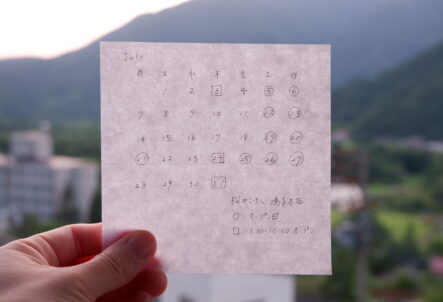 July
月 火 水 木 金 土 日
1 2 3 4 5 6
7 8 9 10 11 12 13
14 15 16 17 18 19 20
21 22 23 24 25 26 27
28 29 30 31
○ オープン日
□ 8:00-10:00 オープン